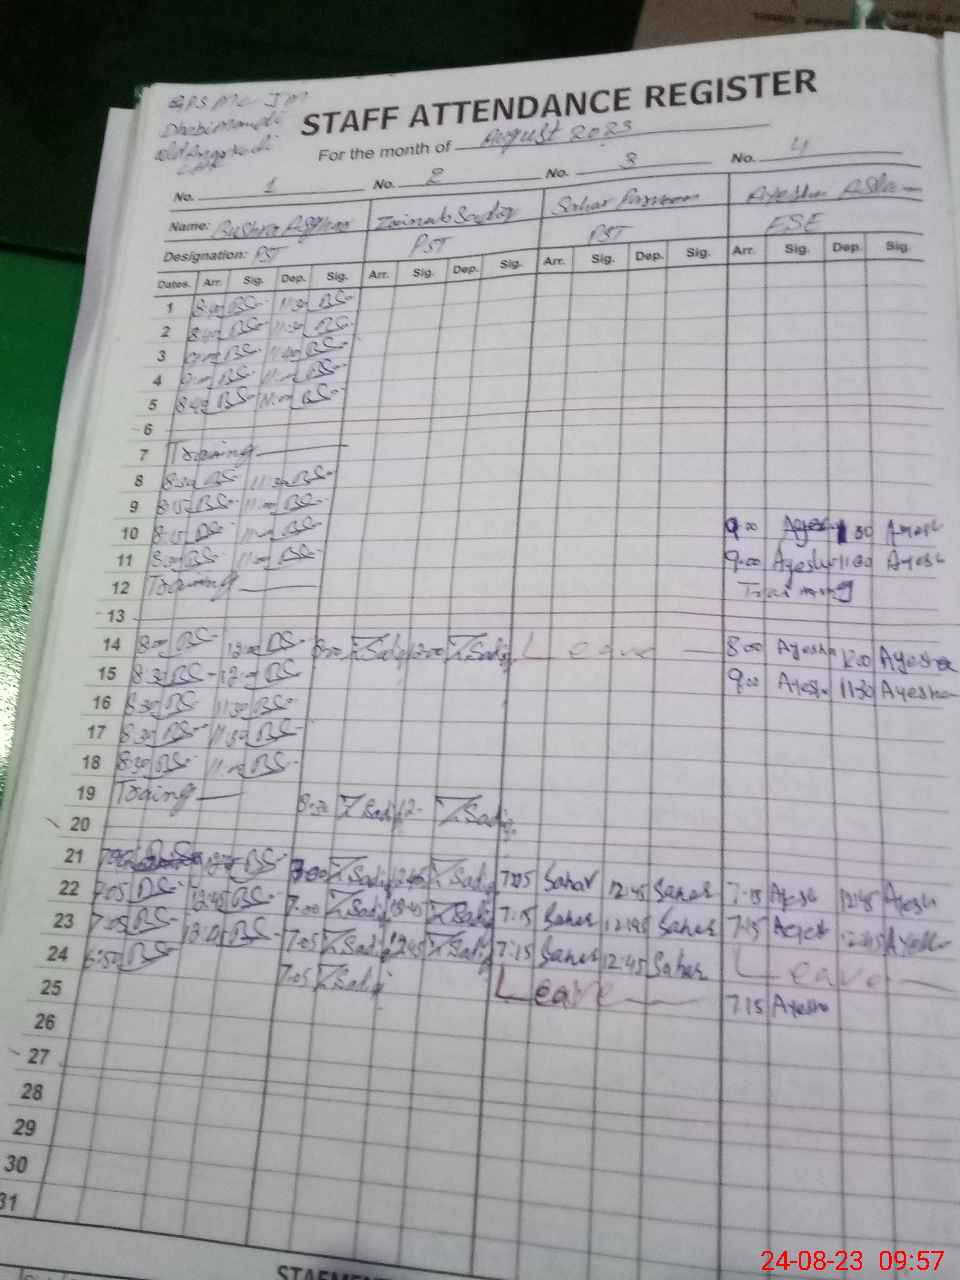 GPS MC JM
STAFF ATTENDANCE REGISTER
For the month of August 2023
No. 1 No. 2 No. 3 No. 4
Name: Bushra Asghar Zainab Sadiq Sahar Parveen Ayesha Aslam
Designation: PST PST PST ESE
Dates. Arr. Sig. Dep. Sig. Arr. Sig. Dep. Sig. Arr. Sig. Dep. Sig. Arr. Sig. Dep. Sig.
1 8:40 BS 11:30 BS
2 8:40 BS 11:30 BS
3 BS 11:00 BS
4 9:00 BS 11:00 BS
5 8:40 BS 11:00 BS
6
7 Traning
8 8:30 BS 11:30 BS
9 8:15 BS 11:00 BS
10 8:15 BS 11:00 BS 9:00 Ayesh 1 30 Ayesh
11 8:00 BS 11:00 BS 9:00 Ayesha 11:30 Ayesh
12 Traning Training
13
14 8:00 BS 12:00 BS 8:00 Z Sadiq 12:00 Z Sadiq Leave 8:00 Ayesha 12:00 Ayesha
15 8:30 BS 12:00 BS 9:00 Ayesh 11:30 Ayesha
16 8:30 BS 11:30 BS
17 8:30 BS 11:30 BS
18 8:30 BS 11:00 BS
19 Traing 8:30 Z Sadiq 12- Z Sadiq
20
21 BS 7:00 Z Sadiq 12:45 Z Sadiq 7:05 Sahar 12:45 Sahar 7:15 Ayesh 12:45 Ayesh
22 7:05 BS 12:45 BS 7:00 Z Sadiq 12:45 Z Sadiq 7:15 Sahar 12:45 Sahar 7:15 Ayesh 12:45 Ayesha
23 7:05 BS BS 7:05 Z Sadiq 12:45 Z Sadiq 7:15 Sahar 12:45 Sahar Leave
24 6:50 BS 7:05 Z Sadiq Leave 7:15 Ayesha
25
26
27
28
29
30
31
24-08-23 09:57